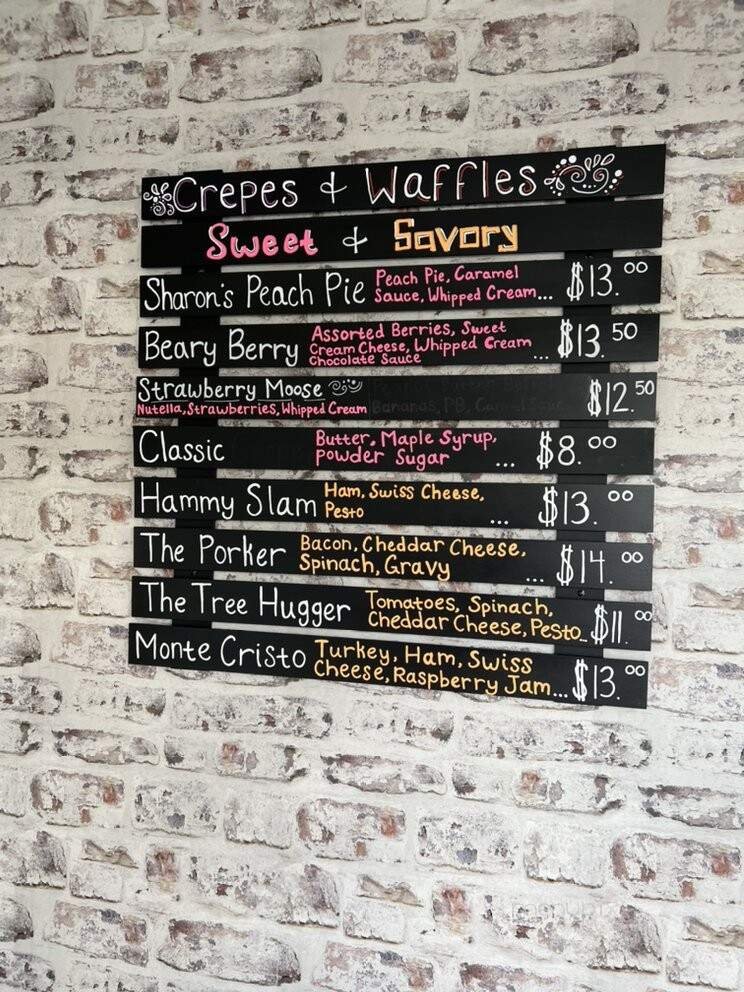 Crepes & Waffles
Sweet & Savory
Sharon's Peach Pie Peach Pie, Caramel
Sauce, Whipped Cream... $13.00
Beary Berry Assorted Berries, Sweet
Cream Cheese, Whipped Cream
Chocolate Sauce ... $13.50
Strawberry Moose
Nutella, Strawberries, Whipped Cream Bananas, PB, $12.50
Classic Butter, Maple Syrup,
Powder Sugar ... $8.00
Hammy Slam Ham, Swiss Cheese,
Pesto ... $13.00
The Porker Bacon, Cheddar Cheese,
Spinach, Gravy ... $14.00
The Tree Hugger Tomatoes, Spinach,
Cheddar Cheese, Pesto... $11.00
Monte Cristo Turkey, Ham, Swiss
Cheese, Raspberry Jam... $13.00